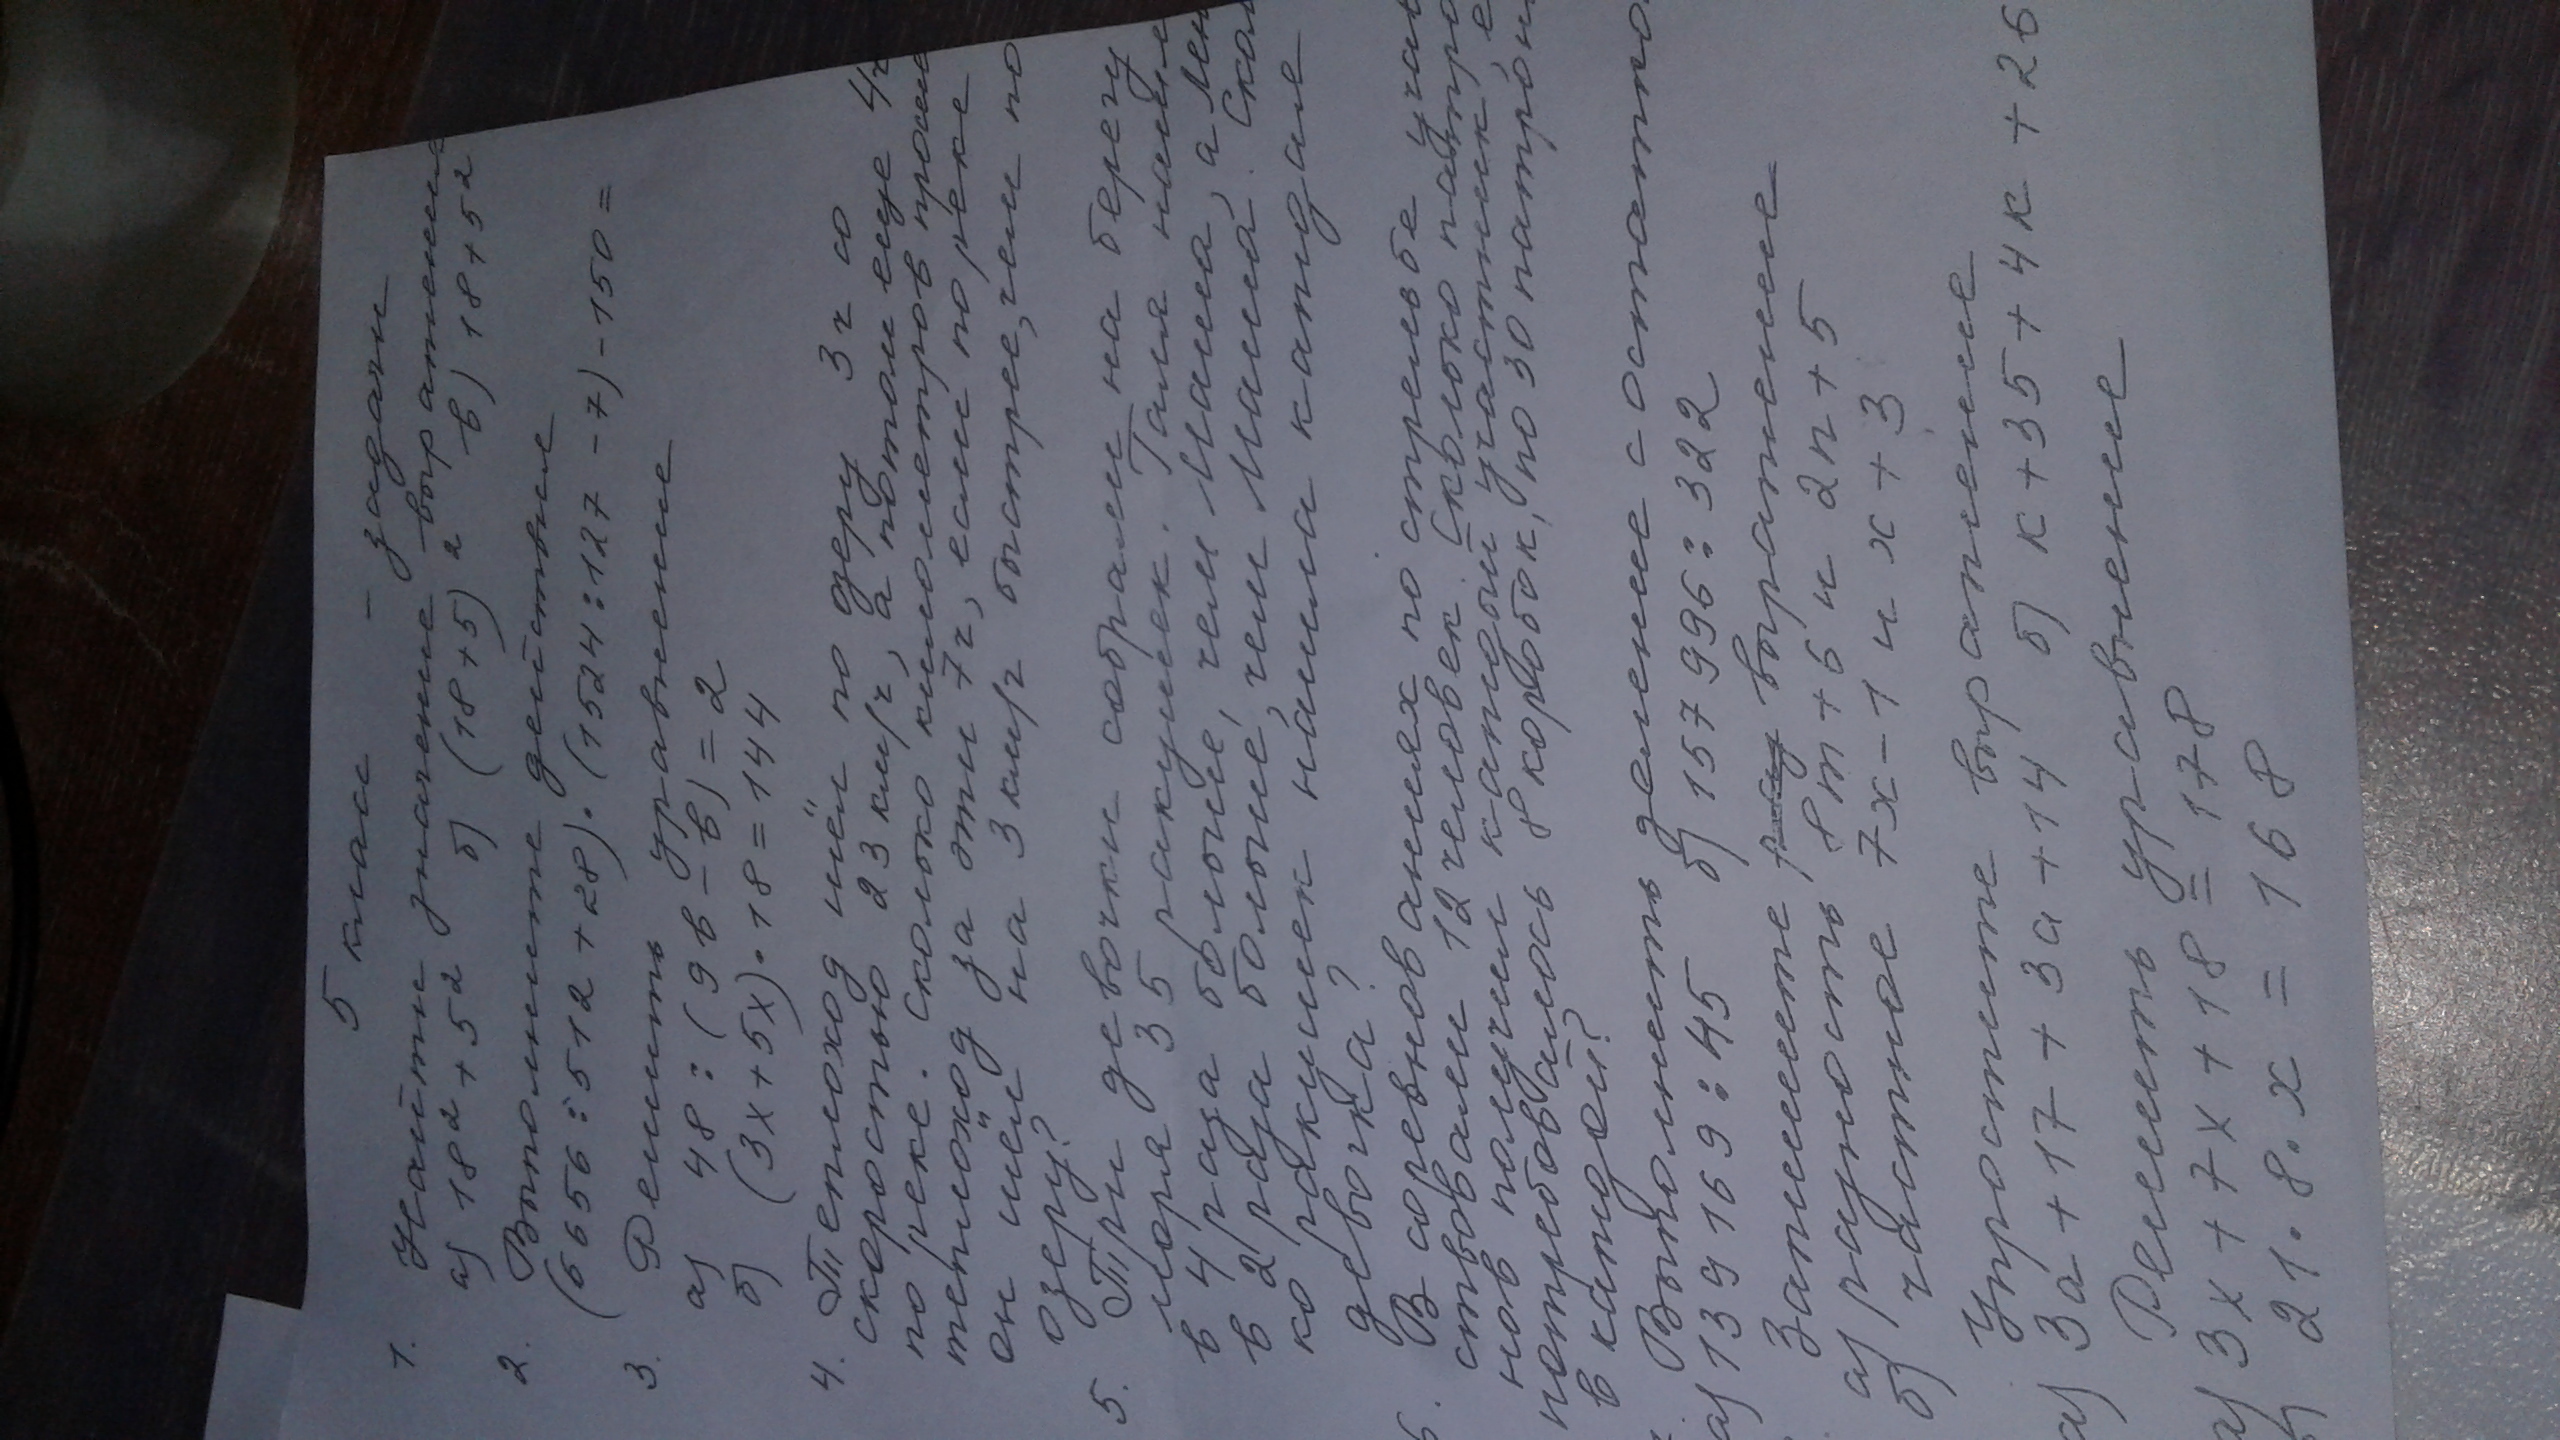 5 класс - задачи
1. Найти значение выражение
а) 18²+5² б) (18+5)² в) 18+5²
2. Выполните действие
(6656:512+28)·(1524:127-7)-150=
3. Решить уравнение
а) 48:(9в-в)=2
б) (3х+5х)·18=144
4. Теплоход шёл по озеру 3ч со
скоростью 23км/ч, а потом еще 4ч
по реке. Сколько километров прошел
теплоход за эти 7ч, если по реке
он шёл на 3км/ч быстрее, чем по
озеру?
5. Три девочки собрали на берегу
моря 35 ракушек. Галя нашла
в 4 раза больше, чем Маша, а Лена
в 2 раза больше, чем Маша. Сколь
ко ракушек нашла каждая
девочка?
6. В соревнованиях по стрельбе учав
ствовали 12 человек. Сколько патро
нов получил каждый участник, е
потребовалось 8 коробок, по 30 патрон
в каждой?
Выполнить деление с остатко
а) 139169:45 б) 157996:322
Запишите выражение
а) разность 8m+6 и 2n+5
б) частное 7х-1 и х+3
Упростите выражение
а) 3а+17+3а+14 б) к+35+4к+26
Решить уравнение
а) 3х+7х+18=178
21·8·х=168